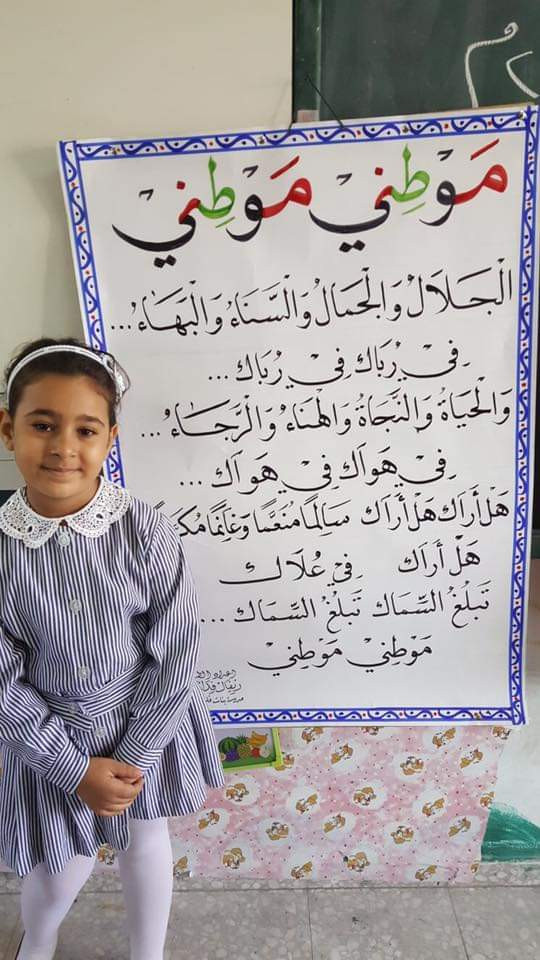 مَوْطِنيْ مَوْطِنيْ
الْجَلَالُ وَالْجَمَالُ وَالْسَّنَاءُ وَالْبَهَاءُ ...
فِيْ رُبَاكَ فِيْ رُبَاكَ ...
وَالْحَيَاةُ وَالْنَّجَاةُ وَالْهَنَاءُ وَالْرَّجَاءُ ...
فِيْ هَوَاكَ فِيْ هَوَاكَ ...
هَلْ أَرَاكَ هَلْ أَرَاكَ سَالِمًا مُنَعَّمًا وَغَانِمًا
هَلْ أَرَاكَ فِيْ عُلَاكَ
تَبْلُغُ السِّمَاكَ تَبْلُغُ السِّمَاكَ ...
مَوْطِنيْ مَوْطِنيْ
إعداد
مدرسة بنات